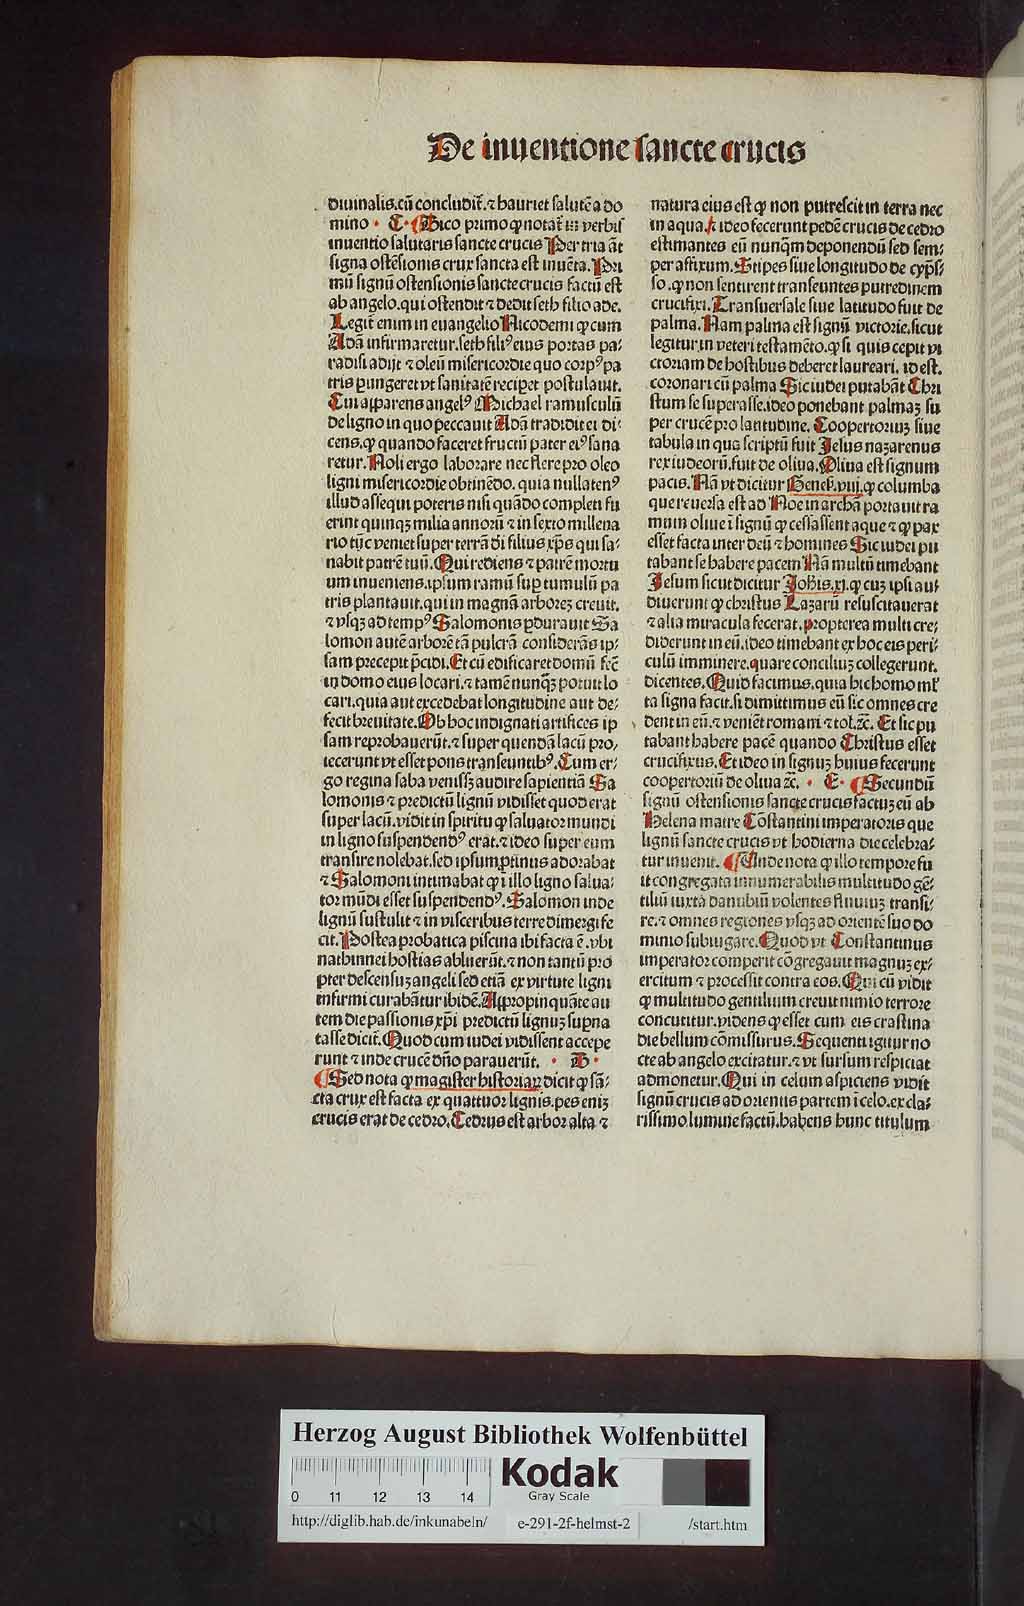 De inuentione sancte crucis
diuinalis.cũ concludit̃.⁊ hauriet salutẽ a do
mino · C · Dico primo ꝙ notat̃ in verbis
inuentio salutaris sancte crucis Per tria ãt
signa ostẽsionis crux sancta est inuẽta. Pri
mũ signũ ostensionis sancte crucis factũ est
ab angelo.qui ostendit ⁊ dedit seth filio ade.
Legit̃ enim in euangelio Nicodemi ꝙ cum
Adã infirmaretur.seth filiꝰ eius portas pa⸗
radisi adijt ⁊ oleũ misericordie quo corpꝰ pa
tris ꝑungeret vt sanitatẽ reciꝑet postulauit.
Cui apparens angelꝰ Michael ramusculũ
de ligno in quo peccauit Adã tradidit ei di⸗
cens.ꝙ quando faceret fructũ pater eiꝰ sana
retur. Noli ergo laborare nec flere pro oleo
ligni misericordie obtinẽdo. quia nullatenꝰ
illud assequi poteris nisi quãdo completi fu
erint quinqꝫ milia annorũ ⁊ in sexto millena
rio tũc veniet super terrã di filius xp̃s qui sa⸗
nabit patrẽ tuũ. Qui rediens ⁊ patrẽ mortu
um inueniens.ipsum ramũ suꝑ tumulũ pa
tris plantauit.qui in magnã arboreꝫ creuit.
⁊ vsqꝫ ad tempꝰ Salomonis ꝑdurauit Sa
lomon autẽ arborẽ tã pulcrã considerãs ip⸗
sam precepit p̃cidi. Et cũ edificaret domũ fec̃
in domo eius locari.⁊ tamẽ nunqꝫ̃ potuit lo
cari.quia aut excedebat longitudine aut de⸗
fecit breuitate. Ob hoc indignati artifices ip
sam reprobauerũt.⁊ super quendã lacũ pro⸗
iecerunt vt esset pons transeuntibꝰ. Cum er⸗
go regina saba venissꝫ audire sapientiã Sa
lomonis ⁊ predictũ lignũ vidisset quod erat
super lacũ.vidit in spiritu ꝙ saluator mundi
in ligno suspendendꝰ erat.⁊ ideo super eum
transire nolebat.sed ipsum ꝓtinus adorabat
⁊ Salomoni intimabat ꝙ ĩ illo ligno salua⸗
tor mũdi esset suspendendꝰ. Salomon inde
lignũ sustulit ⁊ in visceribus terre dimergi fe
cit. Postea probatica piscina ibi facta ẽ.vbi
nathinnei hostias abluerũt.⁊ non tantũ pro
pter descensuꝫ angeli sed etiã ex virtute ligni
infirmi curabãtur ibidẽ. Appropinquãte au
tem die passionis xp̃i predictũ lignuꝫ supna
tasse dicit̃. Quod cum iudei vidissent accepe
runt ⁊ inde crucẽ dño parauerũt. · D ·
Sed nota ꝙ magister historiaꝝ dicit ꝙ sã⸗
cta crux est facta ex quattuor lignis.pes eniꝫ
crucis erat de cedro. Cedrus est arbor alta ⁊
natura eius est ꝙ non putrescit in terra nec
in aqua.⁊ ideo fecerunt pedẽ crucis de cedro
estimantes eũ nunqꝫ̃ deponendũ sed sem⸗
per affixum. Stipes siue longitudo de cyp̃s⸗
so.ꝙ non sentirent transeuntes putredinem
crucifixi. Transuersale siue latitudo fuit de
palma. Nam palma est signũ victorie.sicut
legitur in veteri testamẽto.ꝙ si quis cepit vi
ctoriam de hostibus deberet laureari. id est.
coronari cũ palma Sic iudei putabãt Chri
stum se superasse.ideo ponebant palmaꝫ su
per crucẽ pro latitudine. Coopertoriuꝫ siue
tabula in qua scriptũ fuit Jesus nazarenus
rex iudeorũ.fuit de oliua. Oliua est signum
pacis. Nã vt dicitur Geneſ.viij.ꝙ columba
que reuersa est ad Noe in archã portauit ra
mum oliue ĩ signũ ꝙ cessassent aque ⁊ ꝙ pax
esset facta inter deũ ⁊ homines Sic iudei pu
tabant se habere pacem Nã multũ timebant
Jesum sicut dicitur Johis.xj.ꝙ cuꝫ ipsi au⸗
diuerunt ꝙ christus Lazarũ resuscitauerat
⁊ alia miracula fecerat.propterea multi cre⸗
diderunt in eũ.ideo timebant ex hoc eis peri⸗
culũ imminere.quare conciliuꝫ collegerunt.
dicentes. Quid facimus.quia hic homo ml̃
ta signa facit.si dimittimus eũ sic omnes cre
dent in eũ.⁊ veniẽt romani ⁊ tol.⁊c̃. Et sic pu
tabant habere pacẽ quando Christus esset
crucifixus. Et ideo in signuꝫ huius fecerunt
coopertoriũ de oliua ⁊c̃. · E · Secundũ
signũ ostensionis sancte crucis factuꝫ eũ ab
Helena matre Cõstantini imperatoris que
lignũ sancte crucis vt hodierna die celebra⸗
tur inuenit. Unde nota ꝙ illo tempore fu
it congregata innumerabilis multitudo gẽ⸗
tiliũ iuxta danubiũ volentes fluuiuꝫ transi⸗
re.⁊ omnes regiones vsqꝫ ad orientẽ suo do
minio subiugare. Quod vt Constantinus
imperator comperit cõgregauit magnuꝫ ex⸗
ercitum ⁊ processit contra eos. Qui cũ vidit
ꝙ multitudo gentilium creuit nimio terrore
concutitur.videns ꝙ esset cum eis crastina
die bellum cõmissurus. Sequenti igitur no
cte ab angelo excitatur.⁊ vt sursum respiciat
admonetur. Qui in celum aspiciens vidit
signũ crucis ad orientis partem ĩ celo.ex cla⸗
rissimo lumine factũ.habens hunc titulum
Herzog August Bibliothek Wolfenbüttel
0 11 12 13 14
Kodak
Gray Scale
http://diglib.hab.de/inkunabeln/ e-291-2f-helmst-2 /start.htm